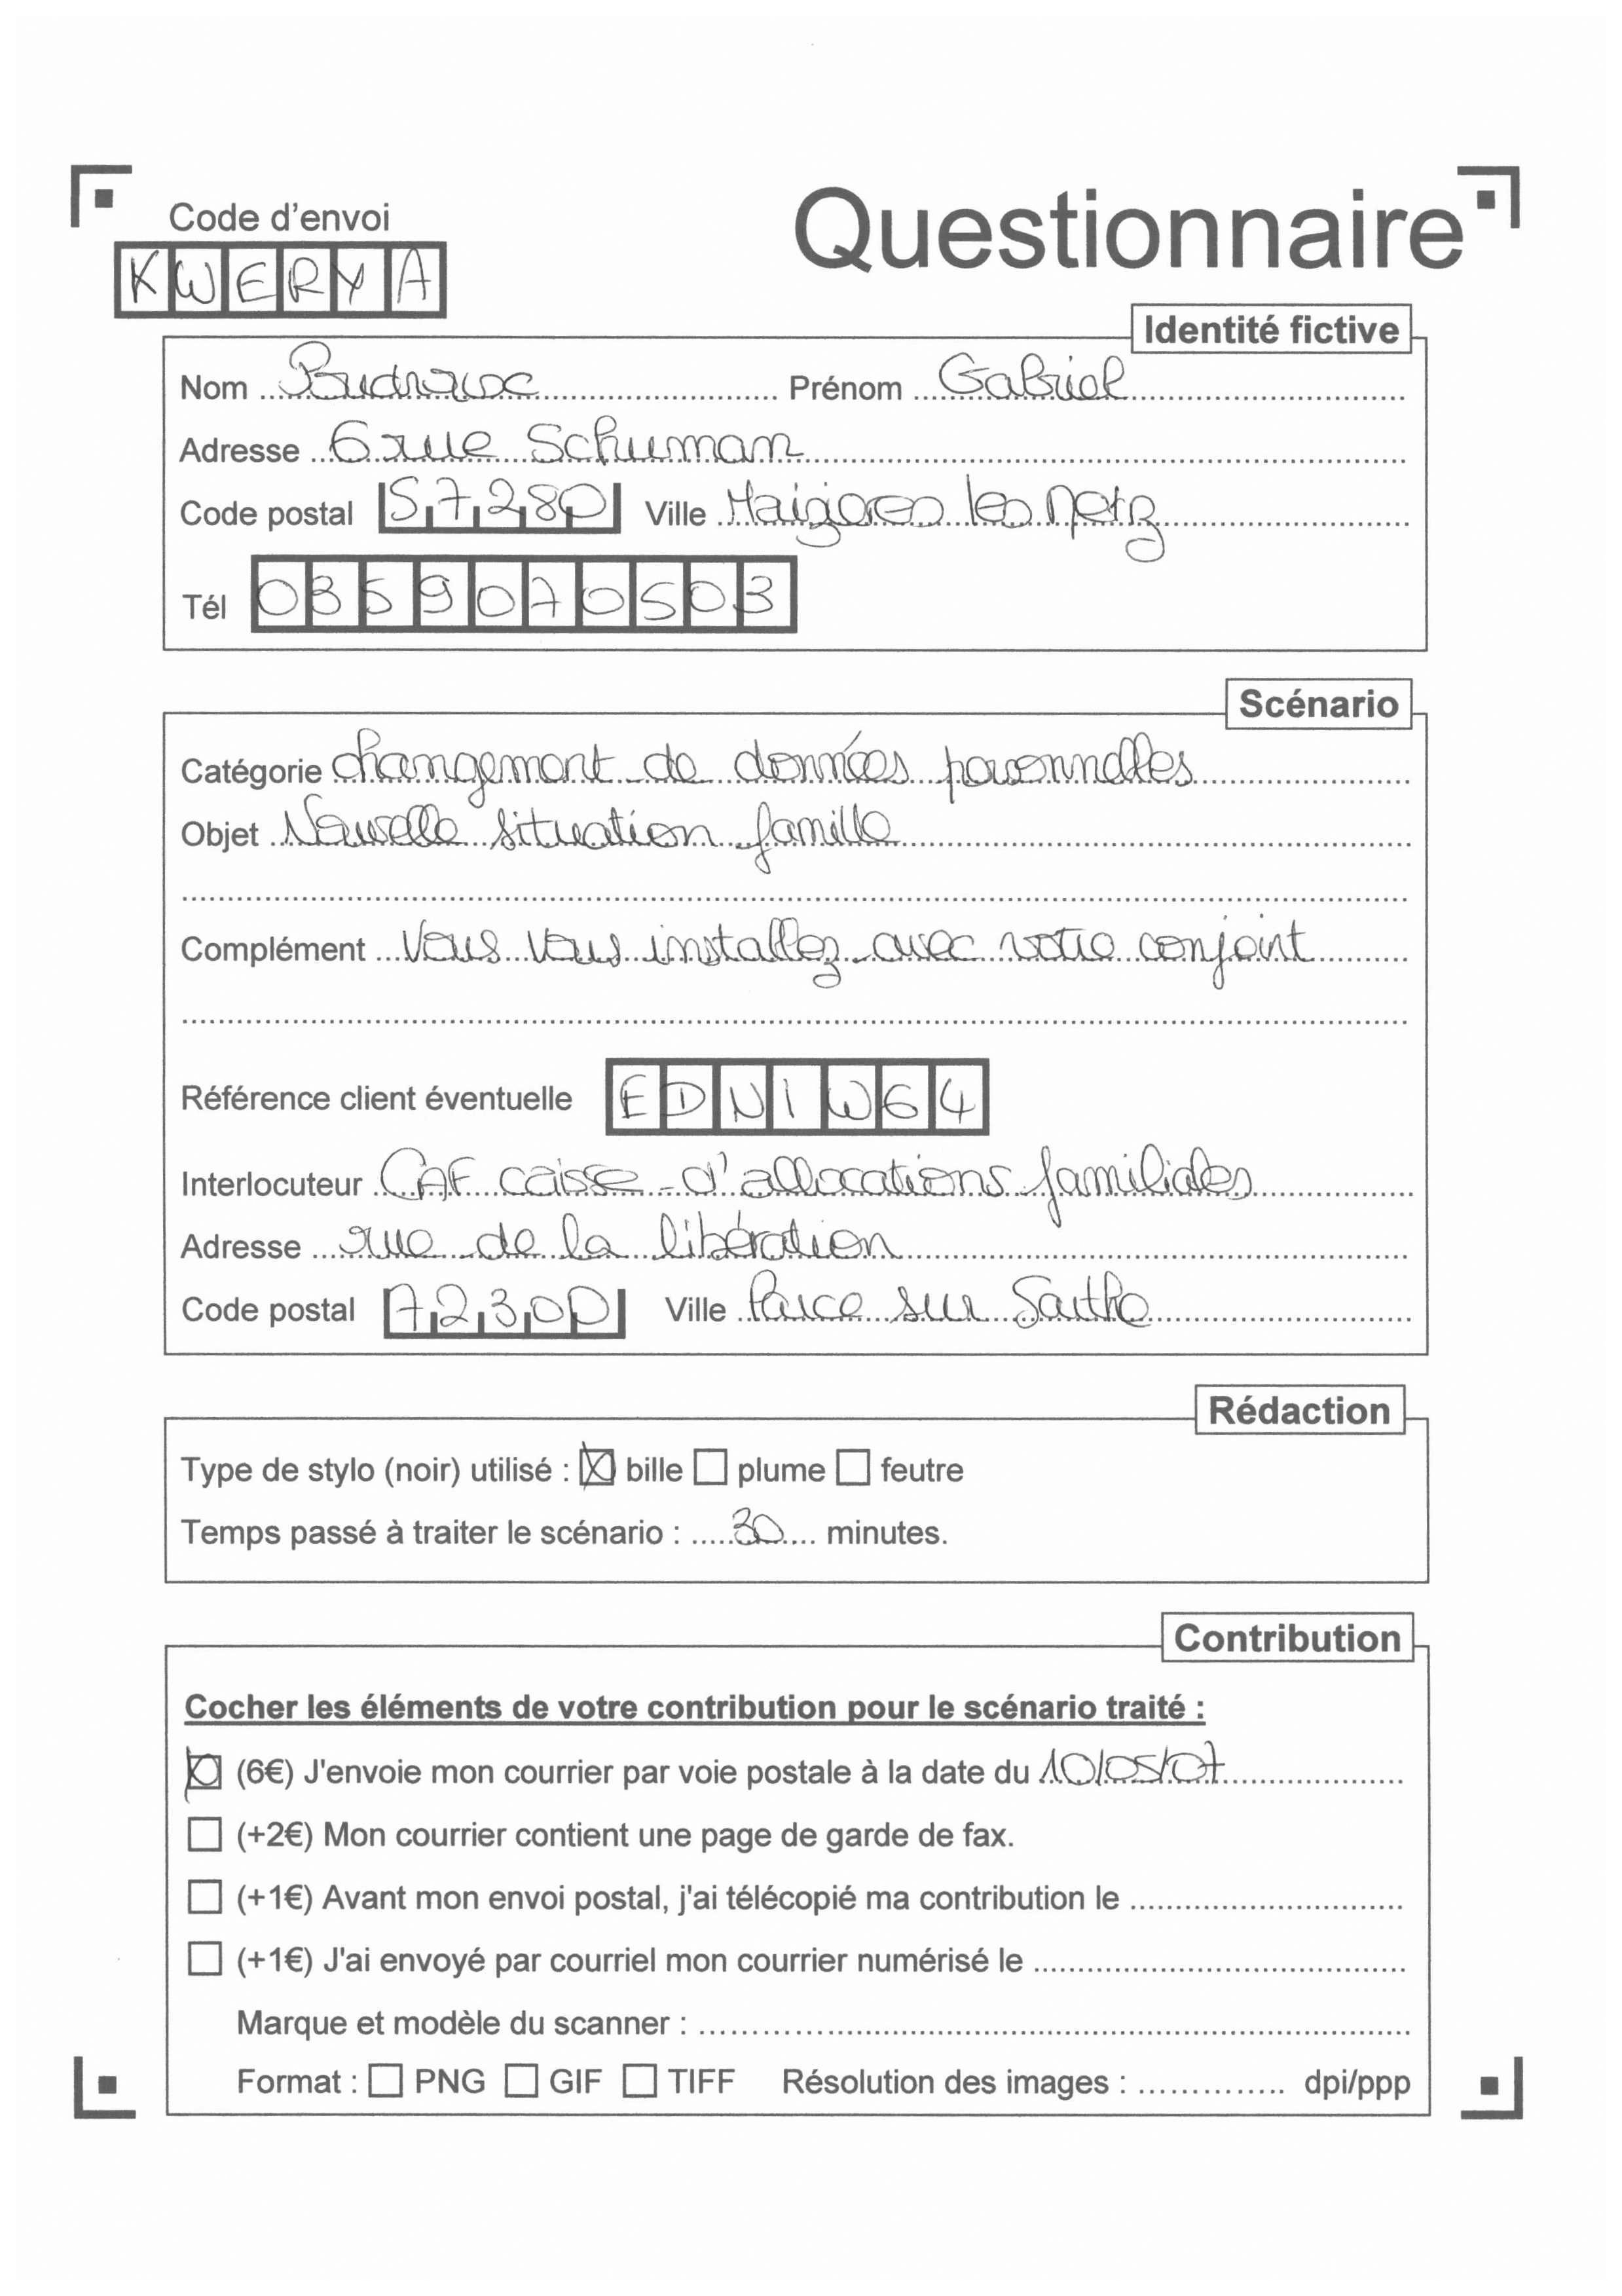 Code d'envoi
Questionnaire
KWERYA
Identité fictive
Nom Budnaux Prénom Gabriel
Adresse 6 rue Schuman
Code postal 57280 Ville les Metz
Tél 0359070503
Scénario
Catégorie changement de données personnelles
Objet Nouvelle situation famille
Complément Vous vous installez avec votre conjoint
Référence client éventuelle EDNIW64
Interlocuteur CAF caisse d'allocations familiales
Adresse rue de la libération
Code postal 72300 Ville Parce sur Sarthe
Rédaction
Type de stylo (noir) utilisé : bille plume feutre
Temps passé à traiter le scénario : 30 minutes.
Contribution
Cocher les éléments de votre contribution pour le scénario traité :
(6€) J'envoie mon courrier par voie postale à la date du 10/05/07
(+2€) Mon courrier contient une page de garde de fax.
(+1€) Avant mon envoi postal, j'ai télécopié ma contribution le
(+1€) J'ai envoyé par courriel mon courrier numérisé le
Marque et modèle du scanner :
Format : PNG GIF TIFF Résolution des images : dpi/ppp